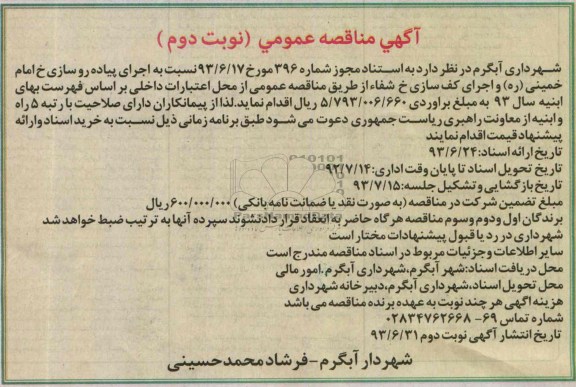 آگهي مناقصه عمومي (نوبت دوم)
شهرداری آبگرم در نظر دارد به استناد مجوز شماره ۳۹۶ مورخ ۹۳/۶/۱۷ نسبت به اجرای پیاده رو سازی خ امام
خمینی (ره) و اجرای کف سازی خ شفاء از طریق مناقصه عمومی از محل اعتبارات داخلی بر اساس فهرست بهای
ابنیه سال ۹۳ به مبلغ برآوردی ۵/۷۹۳/۰۰۶/۶۶۰ ریال اقدام نماید. لذا از پیمانکاران دارای صلاحیت با رتبه ۵ راه
و ابنیه از معاونت راهبری ریاست جمهوری دعوت می شود طبق برنامه زمانی ذیل نسبت به خرید اسناد وارائه
پیشنهاد قیمت اقدام نمایند
تاریخ ارائه اسناد: ۹۳/۶/۲۴
تاریخ تحویل اسناد تا پایان وقت اداری: ۹۲/۷/۱۴
تاریخ بازگشایی و تشکیل جلسه: ۹۳/۷/۱۵
مبلغ تضمین شرکت در مناقصه (به صورت نقد یا ضمانت نامه بانکی) ۶۰۰/۰۰۰/۰۰۰ ریال
برندگان اول ودوم وسوم مناقصه هرگاه حاضر به انعقاد قرار داد نشوند سپرده آنها به ترتیب ضبط خواهد شد
شهرداری در رد یا قبول پیشنهادات مختار است
سایر اطلاعات وجزئیات مربوط در اسناد مناقصه مندرج است
محل دریافت اسناد: شهر آبگرم، شهرداری آبگرم. امور مالی
محل تحویل اسناد، شهرداری آبگرم، دبیرخانه شهرداری
هزینه اگهی هر چند نوبت به عهده برنده مناقصه می باشد
شماره تماس ۶۹- ۰۲۸۳۴۷۶۲۶۶۸
تاریخ انتشار آگهی نوبت دوم ۹۳/۶/۳۱
شهردار آبگرم-فرشاد محمدحسینی